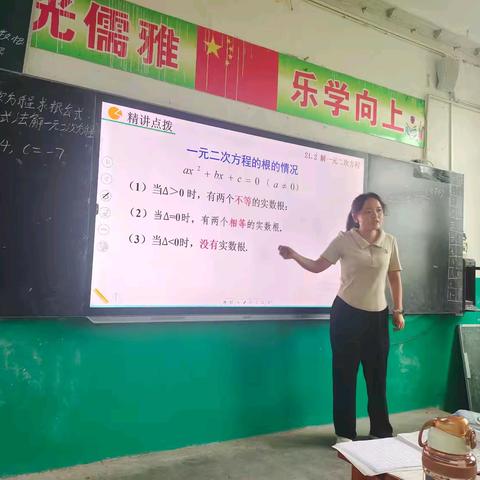 光儒雅
乐学向上
次方程求根公式
式法解一元二次方程
4, c=-7
精讲点拨
21.2 解一元二次方程
一元二次方程的根的情况
ax²+bx+c=0（a≠0）
（1）当Δ>0时，有两个不等的实数根；
（2）当Δ=0时，有两个相等的实数根.
（3）当Δ<0时，没有实数根.